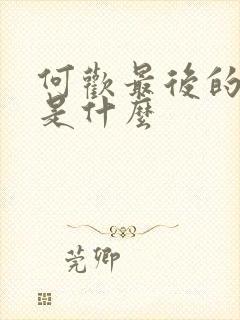 何歡最後的
是什麼
莞卿